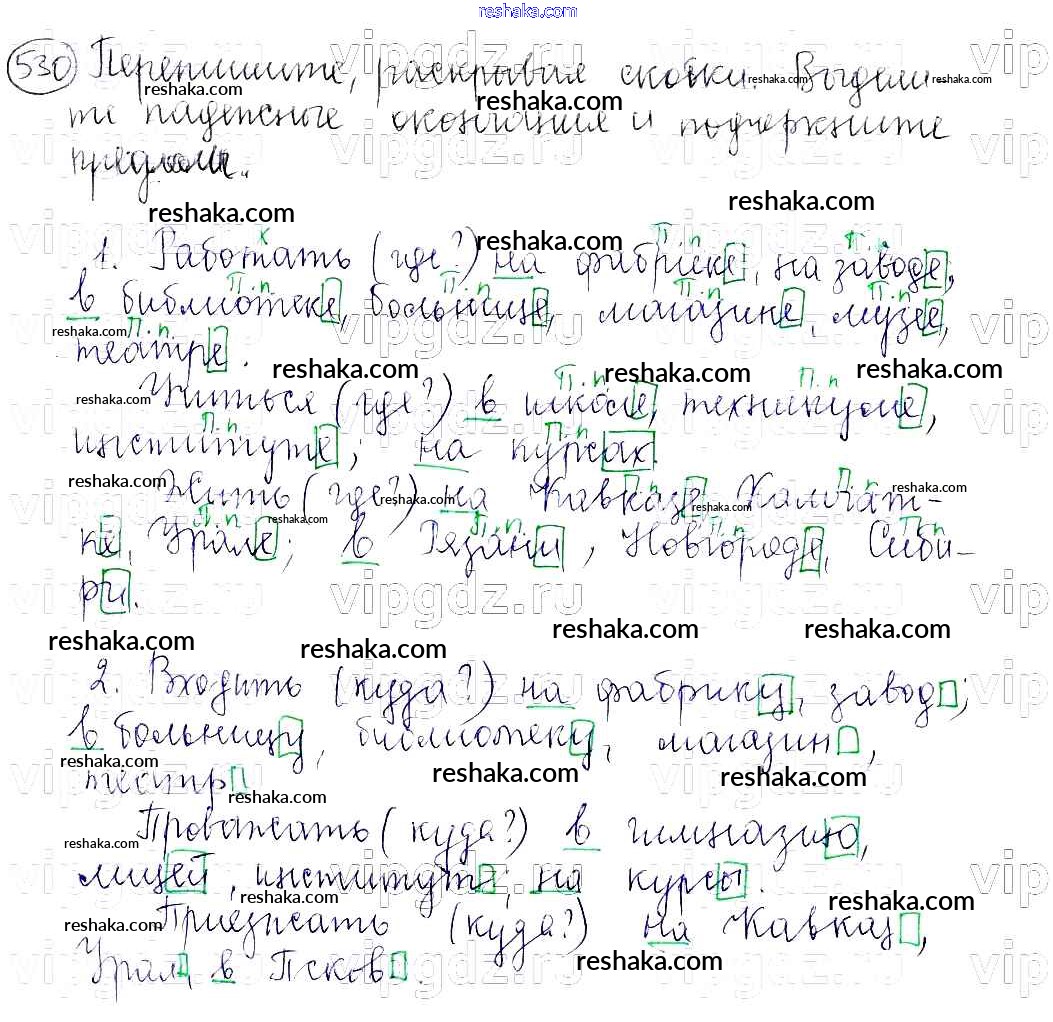 reshaka.com
530 Перепишите, раскрывая скобки. Выдели-
те падежные окончания и подчеркните
предлоги.
1. Работать (где?) на фабрике, на заводе,
в библиотеке, больнице, магазине, музее,
театре.
Учиться (где?) в школе, техникуме,
институте; на курсах.
Жить (где?) на Кавказе, Камчат-
ке, Урале; в Рязани, Новгороде, Сиби-
ри.
2. Входить (куда?) на фабрику, завод;
в больницу, библиотеку, магазин,
театр.
Провожать (куда?) в гимназию,
лицей, институт; на курсы.
Приезжать (куда?) на Кавказ,
Урал, в Псков.